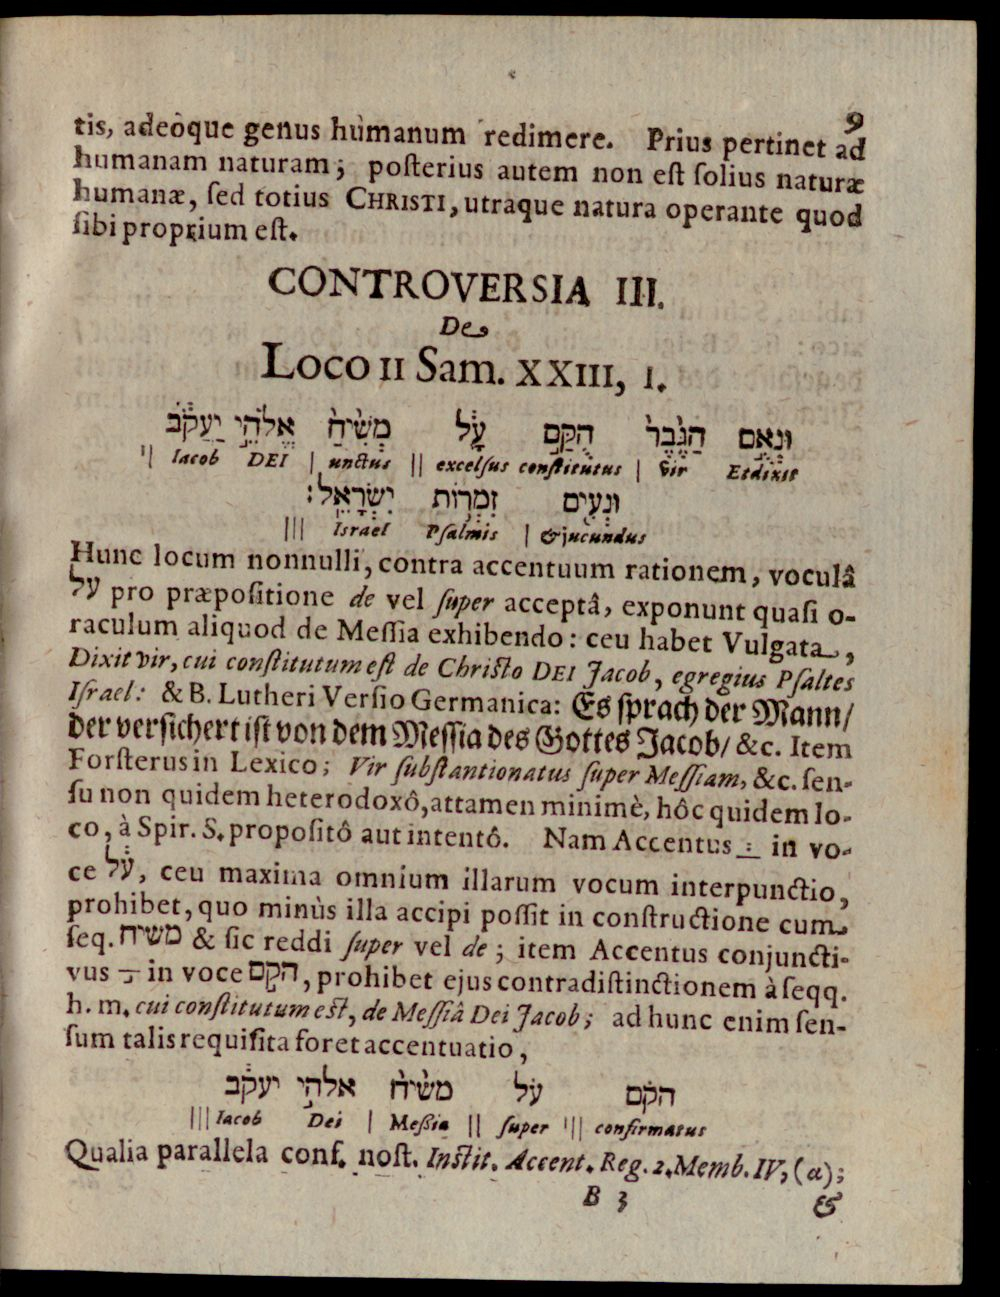 9
tis, adeòque genus humanum redimere. Prius pertinet ad
humanam naturam; poſterius autem non eſt ſolius naturæ
humanæ, ſed totius CHRISTI, utraque natura operante quod
ſibi proprium eſt.
CONTROVERSIA III.
De
Loco II Sam. XXIII, 1.
וּנְאֻ֧ם הַגֶּ֙בֶר֙ הֻ֣קַם עָ֔ל מְשִׁ֙יחַ֙ אֱלֹהֵ֣י יַֽעֲקֹ֔ב
Iacob DEI | unctus || excelſus conſtitutus | Vir Et dixit
וּנְעִ֖ים זְמִר֥וֹת יִשְׂרָאֵֽל׃
||| Israel Pſalmis | & jucundus
Hunc locum nonnulli, contra accentuum rationem, voculâ
על pro præpoſitione de vel ſuper acceptâ, exponunt quaſi o-
raculum aliquod de Meſſia exhibendo: ceu habet Vulgata,
Dixit vir, cui conſtitutum eſt de Chriſto DEI Jacob, egregius Pſaltes
Iſrael: & B. Lutheri Verſio Germanica: Es ſprach der Mann/
der verſichert iſt von dem Meſſia des Gottes Jacob/ &c. Item
Forſterus in Lexico; Vir ſubſtantionatus ſuper Meſſiam, &c. ſen-
ſu non quidem heterodoxô, attamen minimè, hôc quidem lo-
co, à Spir. S. propoſitô aut intentô. Nam Accentus ֔ in vo-
ce עָ֔ל, ceu maxima omnium illarum vocum interpunctio,
prohibet, quo minùs illa accipi poſſit in conſtructione cum
ſeq. משיח & ſic reddi ſuper vel de; item Accentus conjuncti-
vus ֣ in voce הקם, prohibet ejus contradiſtinctionem à ſeqq.
h. m. cui conſtitutum eſt, de Meſſiâ Dei Jacob; ad hunc enim ſen-
ſum talis requiſita foret accentuatio,
הקם֗ על֔ משיח֙ אלהי֣ יעקב֔
||| Iacob Dei | Meßia || ſuper ||| confirmatus
Qualia parallela conf. noſt. Inſtit. Accent. Reg. 2. Memb. IV, (α);
B 3
&